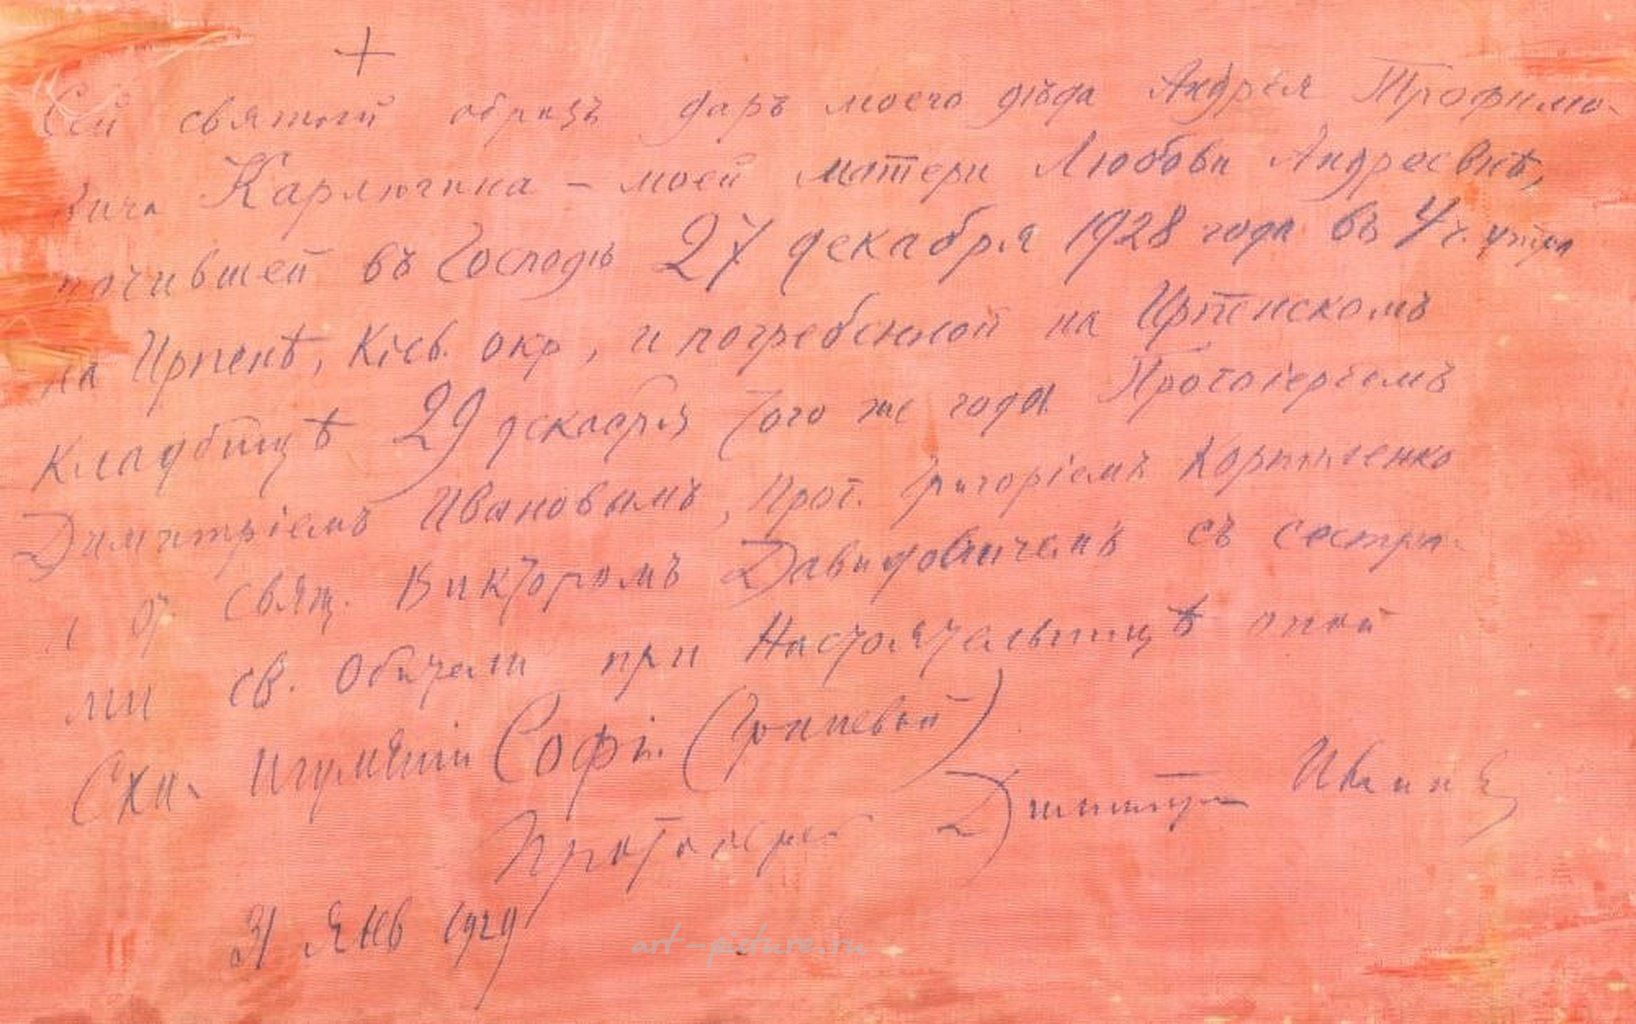 +
Сей святый образъ даръ моего дѣда Андрея Трофимо-
вича Карлюгина - моей матери Любови Андреевнѣ,
почившей въ Господѣ 27 декабря 1928 года въ 4 ч. утра
на Ирпенѣ, Кіев. окр, и погребенной на Ирпенскомъ
Кладбищѣ 29 декабря того же года Протоіереемъ
Димитріемъ Ивановымъ, Прот. Григоріемъ
и свящ. Викторомъ Давидовичемъ съ сестра-
ми св. Обители при Настоятельницѣ оной
Схи- Игуменіи Софіи
Протоіерей Димитрій Иванов
31 Янв 1929
art-picture.ru